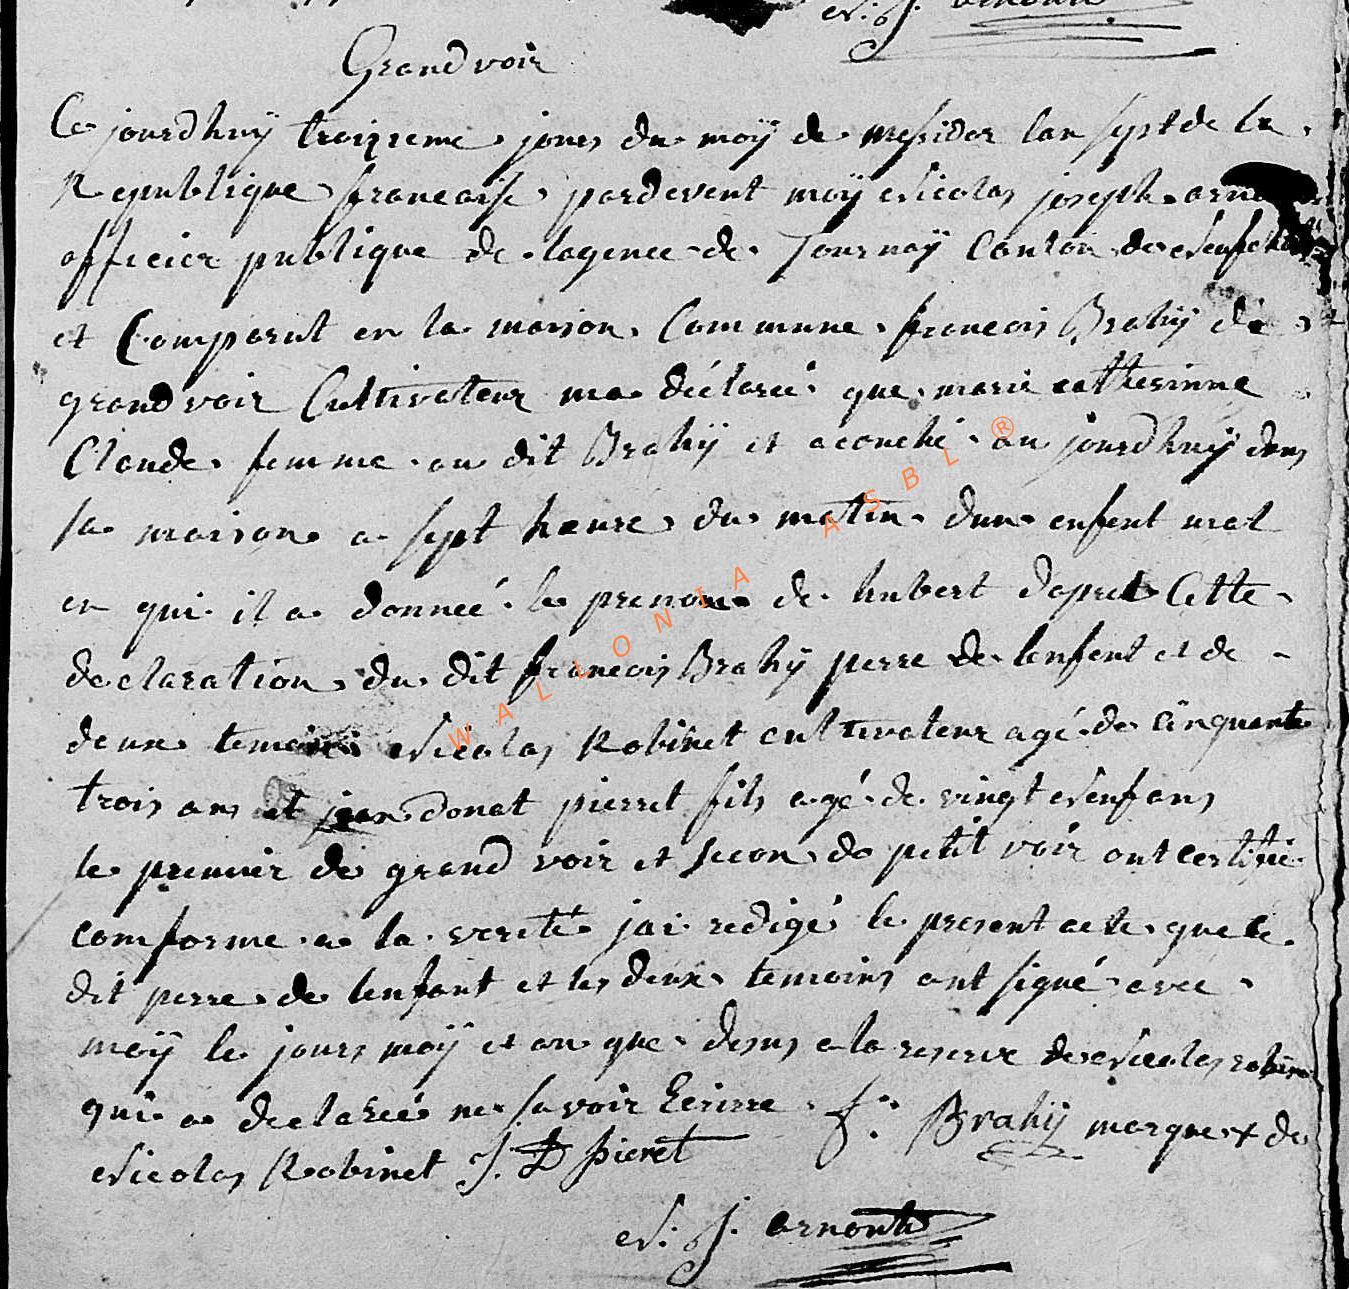 N: J. arnould
Grandvoir
Ce jourdhuÿ troisieme jours du moÿ de messidor lan sept de la
Republique francaise pardevent moÿ Nicolas joseph
officier publique de lagence de Tournaÿ Canton de
et Comparut en la maison Commune francois Brahÿ de
grandvoir Cultivateur ma déclareé que marie catherinne
Claude femme au dit Brahÿ et acouché au jourdhuÿ dens
sa maison a sept heure du matin dun enfent mal
en qui il a donneé le prenom de hubert dapret Cette
declaration du dit francois Brahÿ perre de lenfent et de
deux temoins Nicolas Robinet cultivateur agé de cinquante
trois ans et jean donat pierret fils agé de vingt neuf ans
le premier de grand voir et secon de petit voir ont certifié
comforme a la verité jai redigé le present acte que le
dit perre de lenfant et les deux temoins ont signé avec
moÿ le jours moÿ et an que desus a la reserve de Nicolas
qui a declareé ne savoir Ecrirre f: Brahÿ marque + de
Nicolas Robinet J. D pieret
N: J. arnould
WALLONIA ASBL ®